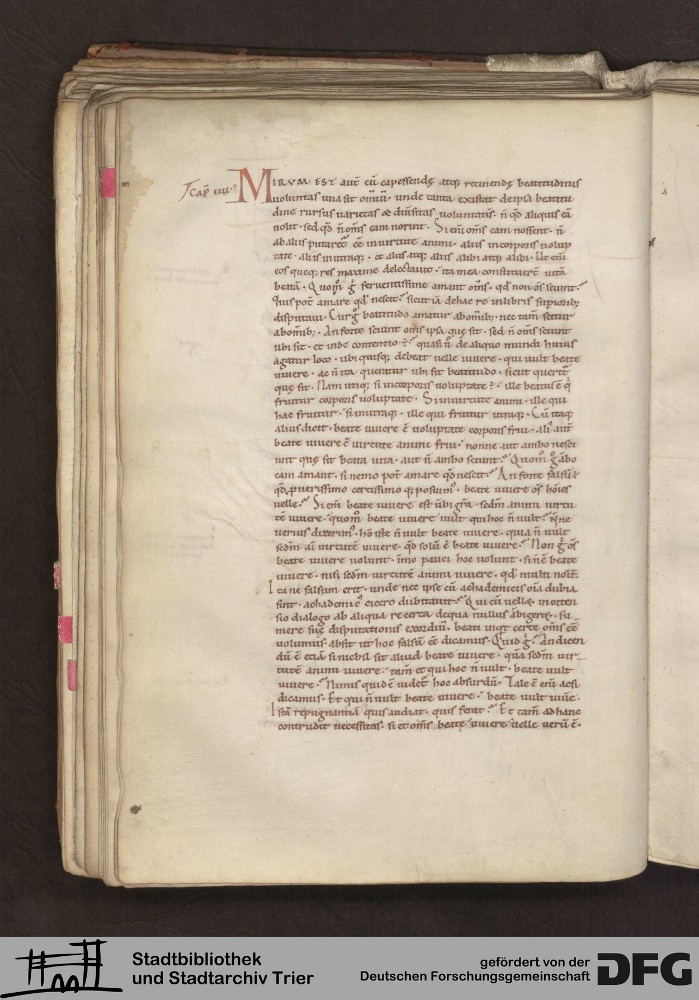 Cap̄ iiii·
MIRVM EST aut̄ cū capessendę atq; retinendę beatitudinis
uoluntas una sit om̄iū· unde tanta existat de ipsa beatitu
dine rursus uarietas & diuersitas uoluntatis· n̄ qd̄ aliquis eā
nolit· sed qd̄ n̄ om̄s eam norint· Si eni om̄s eam nossent· n̄
ab aliis putaret̄ eē in uirtute animi· aliis in corporis uolup
tate· aliis in utraq;· et aliis atq; aliis alibi atq; alibi· Ut eni
eos queq; res maxime delectauit· ita in ea constituerent uitā
beatā· Quom̄ g̊ feruentissime amant om̄s· qd̄ non om̄s sciunt·
Quis potest amare qd̄ nescit· sicut iā de hac re in libris superiorib;
disputaui· Cur g̊ beatitudo amatur ab omib;· nec tam̄ scitur
ab omib;· An forte sciunt om̄s ipsa que sit· sed n̄ om̄s sciunt
ubi sit· et inde contentio ē· quasi ū de aliquo mundi huius
agatur loco· ubi quisq; debeat uelle uiuere· qui uult beate
uiuere· ac n̄ ita queratur ubi sit beatitudo· sicut querit̄
quę sit· Nam utiq; si in corporis uoluptate ē· ille beatus ē q̇
fruitur corporis uoluptate· Si in uirtute animi· ille qui
hac fruitur· si in utraq;· ille qui fruitur utraq;· Cū itaq;
alius dicit· beate uiuere ē uoluptate corporis frui· alī aut̄
beate uiuere ē uirtute animi frui· nonne aut ambo nesci
unt quę sit beata uita· aut n̄ ambo sciunt· Quom̄ g̊ ābo
eam amant· si nemo pot̄ amare qd̄ nescit· An forte falsū ē
qd̄ p uerissimo certissimo q; posuim᷒· beate uiuere om̄s hoies
uelle· Si eni beate uiuere est ūbi gr̄a· sedm̄ animi uirtu
tē uiuere· quom̄ beate uiuere uult qui hoc n̄ uult· n̄ne
uerius dixerim᷒· hō iste n̄ uult beate uiuere· quia n̄ uult
sedm̄ ai uirtutē uiuere· qd̄ solū ē beate uiuere· Non g̊ om̄s
beate uiuere uolunt· imo pauci hoc uolunt· si n̄ ē beate
uiuere· nisi sedm̄ uirtutē animi uiuere· qd̄ multi nolt̄·
Ita ne falsum erit· unde nec ipse cū achademicis oīa dubia
sint· achademic᷒ cicero dubitauit· Qui cū uellet in orten
sio dialogo ab aliqua re certa de qua nullus ābigeret· su
mere suę disputationis exordiū· beati inqt certe om̄s eē
uolumus absit ut hoc falsū eē dicamus· Quid g̊· An dicen
dū ē etiā si nichil sit aliud beate uiuere· quā sedm̄ uir
tutē animi uiuere· tam̄ et qui hoc n̄ uult· beate uult
uiuere· Nimis quidē uidet̄ hoc absurdū· Tale ē eni ac si
dicamus· Et qui n̄ uult beate uiuere· beate uult uiuē·
Istā repugnantiā quis audiat· quis ferat· Et tam̄ ad hanc
contrudit necessitas· si et om̄s beate uiuere uelle uerū ē·
Stadtbibliothek
und Stadtarchiv Trier
gefördert von der
Deutschen Forschungsgemeinschaft
DFG